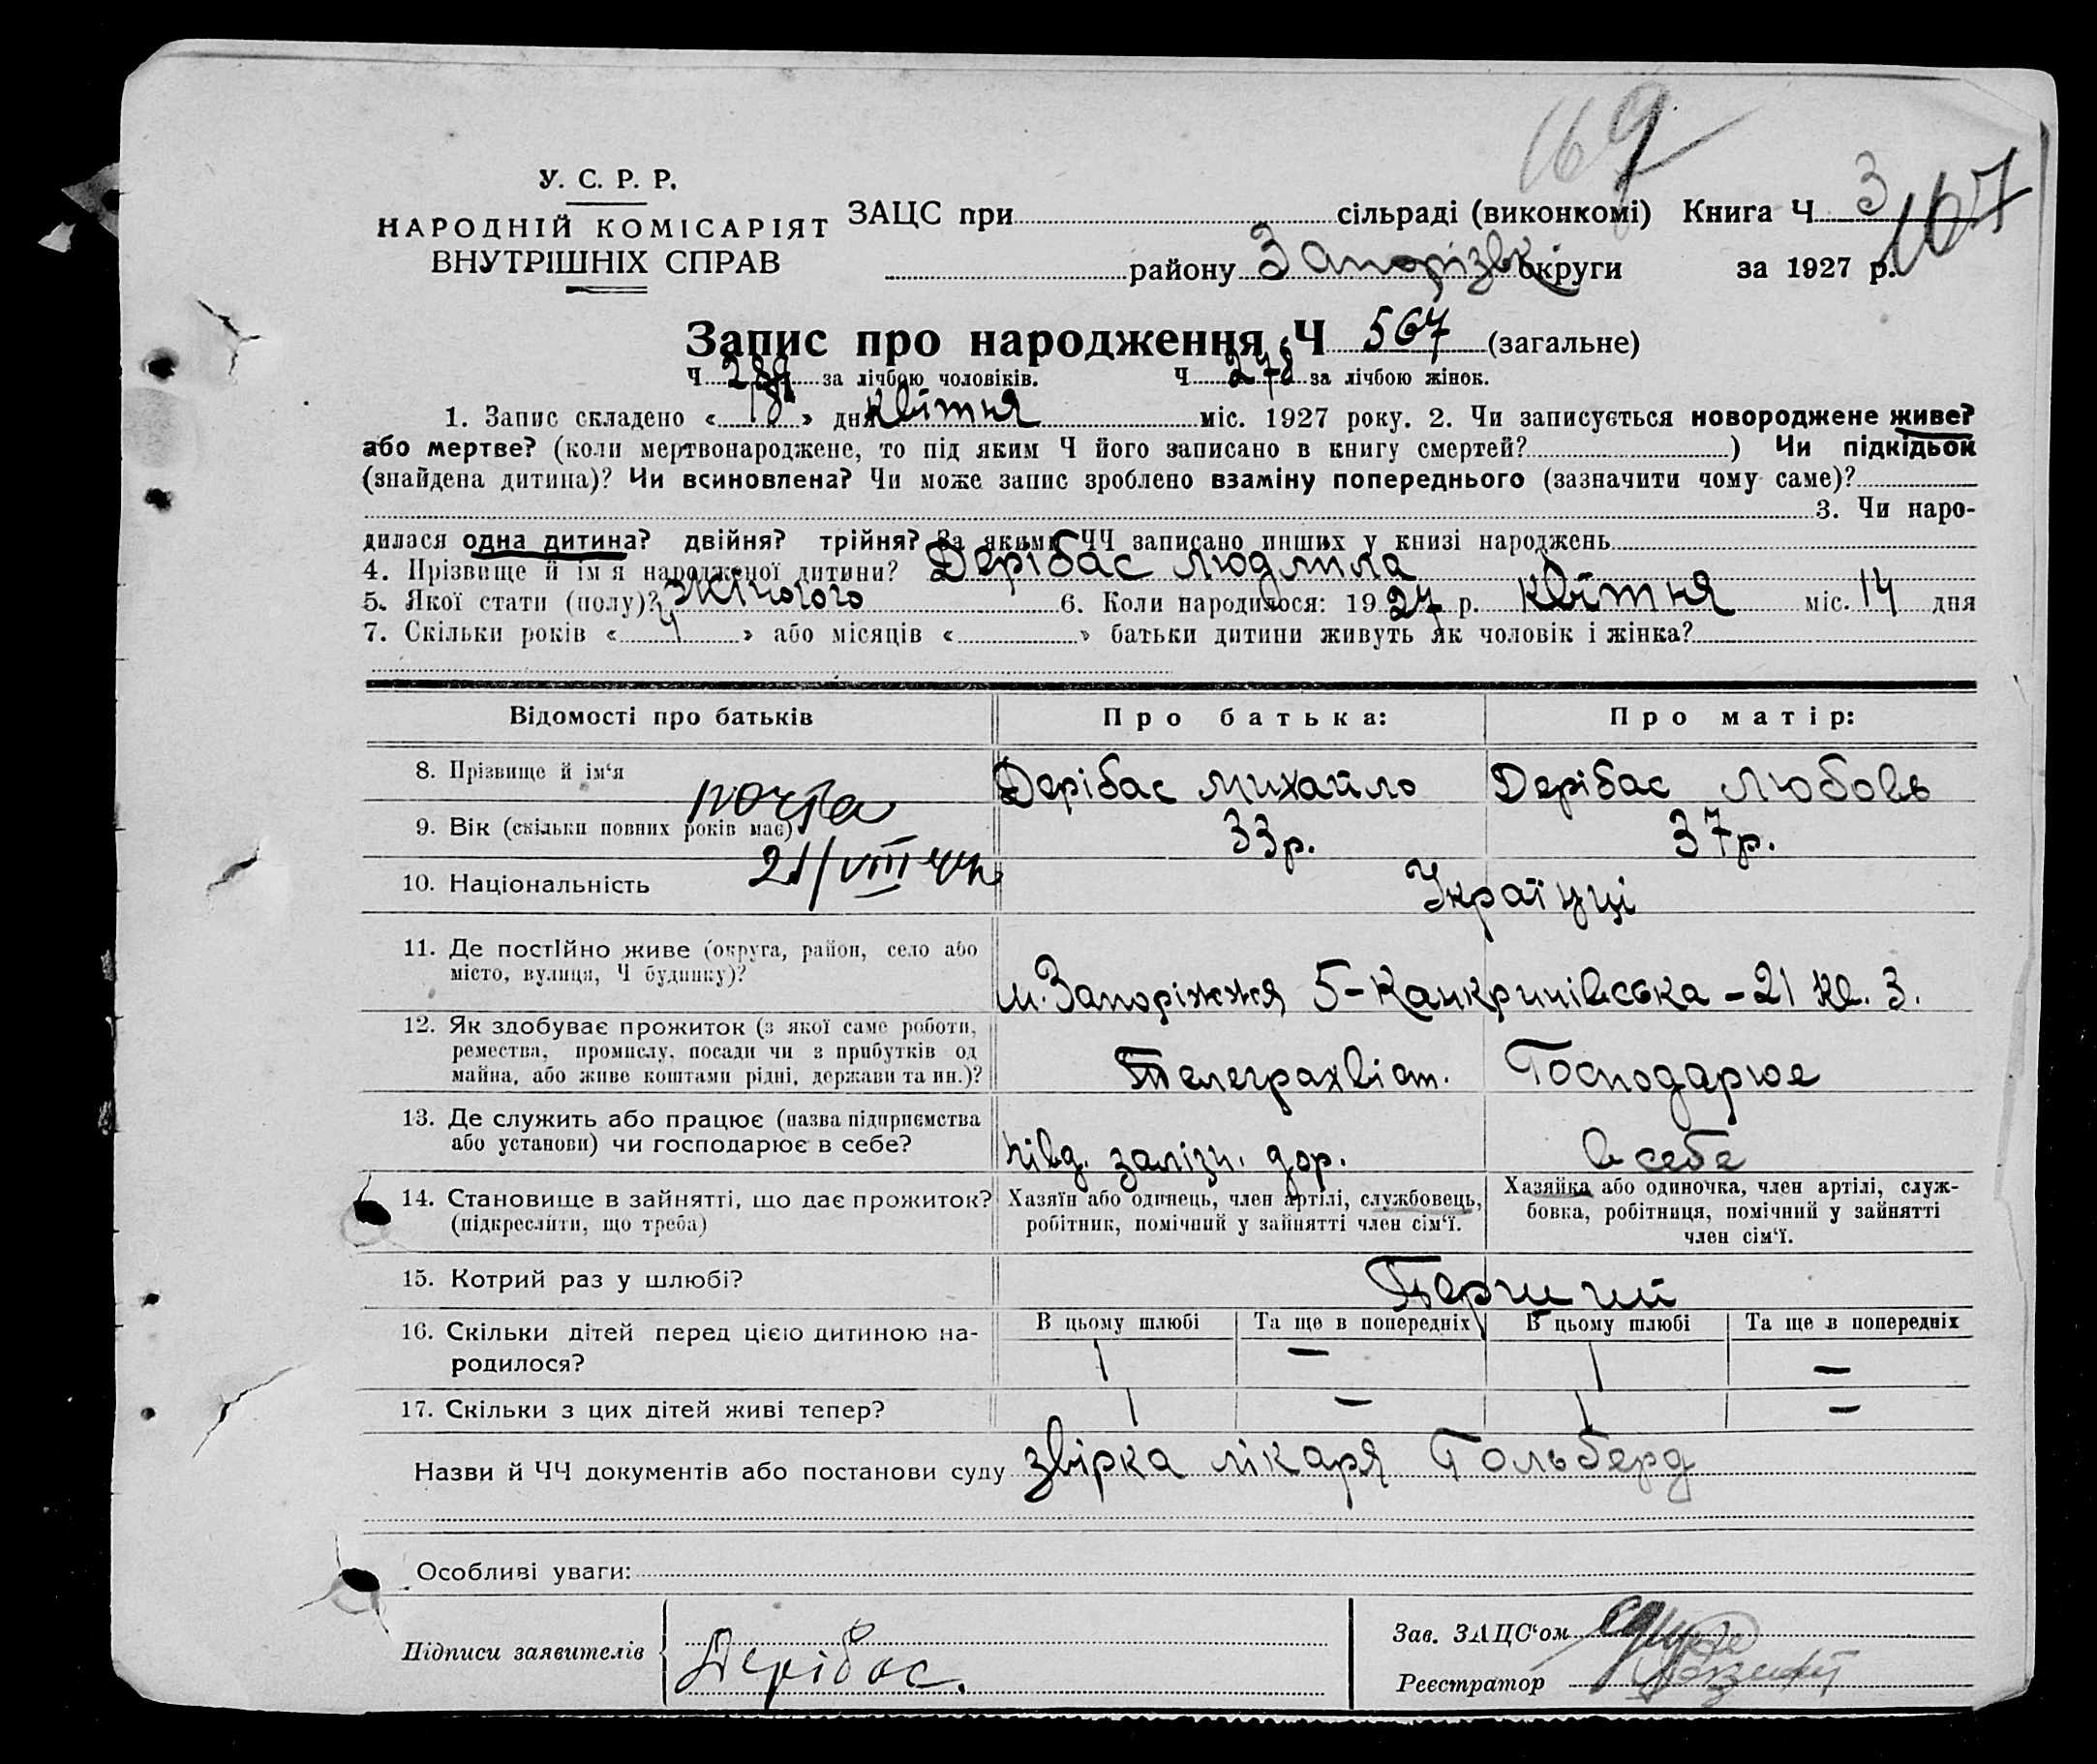 169
У. С. Р. Р.
НАРОДНІЙ КОМІСАРІЯТ
ВНУТРІШНІХ СПРАВ
ЗАЦС при сільраді (виконкомі) Книга Ч 3
167
району Запорізьк округи за 1927 р.
Запис про народження Ч 567 (загальне)
Ч 289 за лічбою чоловіків. Ч 278 за лічбою жінок.
1. Запис складено « 18 » дня квітня міс. 1927 року. 2. Чи записується новороджене живе?
або мертве? (коли мертвонароджене, то під яким Ч його записано в книгу смертей? ) Чи підкідьок
(знайдена дитина)? Чи всиновлена? Чи може запис зроблено взаміну попереднього (зазначити чому саме)?
3. Чи наро-
дилася одна дитина? двійня? трійня? За якими ЧЧ записано инших у книзі народжень
4. Прізвище й ім я народженої дитини? Дерібас Людмила
5. Якої стати (полу)? Жіночого 6. Коли народилося: 1927 р. квітня міс. 14 дня
7. Скільки років « 4 » або місяців « » батьки дитини живуть як чоловік і жінка?
Відомості про батьків Про батька: Про матір:
8. Прізвище й ім‘я Дерібас Михайло Дерібас Любовь
почта
9. Вік (скільки повних років має) 33р. 37р.
21/VIII 44
10. Національність Українці
11. Де постІйно живе (округа, район, село або
місто, вулиця, Ч будинку)? м. Запоріжжя 5-Канкринівська - 21 кв. 3.
12. Як здобуває прожиток (з якої саме роботи,
ремества, промислу, посади чи з прибутків од
майна, або живе коштами рідні, держави та ин.)? Телеграхвіст. Господарює
13. Де служить або працює (назва підприємства
або установи) чи господарює в себе? півд. залізн. дор. в себе
14. Становище в зайнятті, що дає прожиток?
(підкреслити, що треба)
Хазяїн або одинець, член артілі, службовець,
робітник, помічний у зайнятті член сім‘ї.
Хазяйка або одиночка, член артілі, служ-
бовка, робітниця, помічний у зайнятті
член сім‘ї.
15. Котрий раз у шлюбі? Перший
16. Скільки дітей перед цією дитиною на-
родилося?
В цьому шлюбі Та ще в попередніх В цьому шлюбі Та ще в попередніх
1 — 1 —
17. Скільки з цих дітей живі тепер? 1 — 1 —
Назви й ЧЧ документів або постанови суду звірка лікаря Гольберд
Особливі уваги:
Підписи заявителів Дерібас.
Зав. ЗАЦС‘ом
Реєстратор